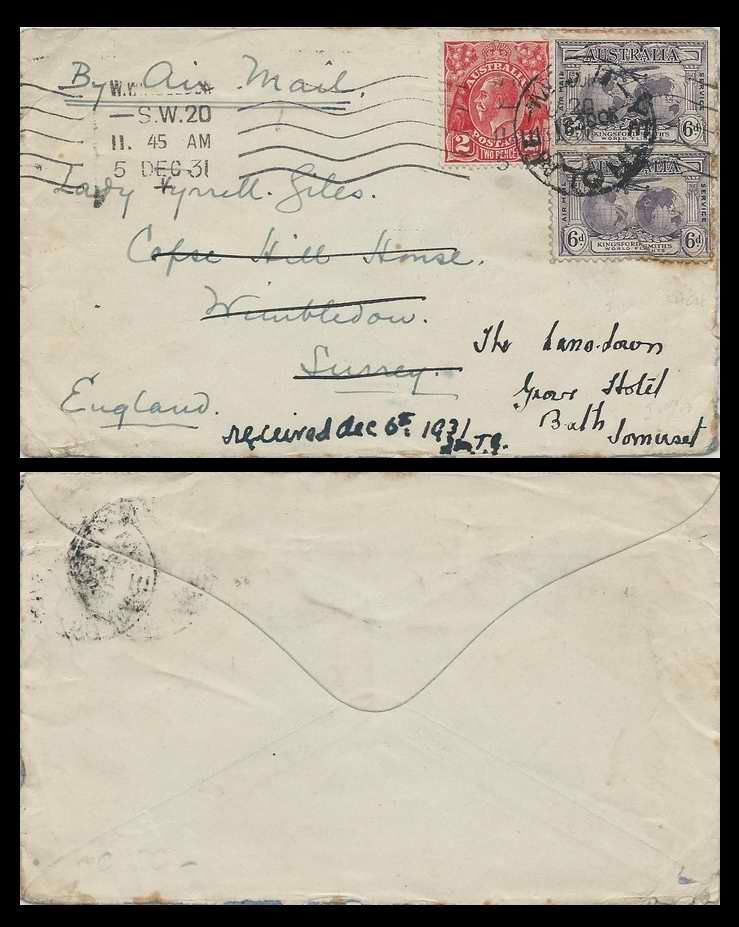 By Air Mail.
— S.W.20
11. 45 AM
5 DEC 31
AUSTRALIA
2 2
POSTAGE
TWO PENCE
AUSTRALIA
AIR MAIL SERVICE
6d 6d
KINGSFORD SMITH'S
WORLD FLIGHTS
AUSTRALIA
AIR MAIL SERVICE
6d 6d
KINGSFORD SMITH'S
WORLD FLIGHTS
Lady Tyrrell. Giles.
Copse Hill House.
Wimbledon.
Surrey.
England.
The Lansdown
Grove Hotel
Bath
Somerset
received dec 6th 1931